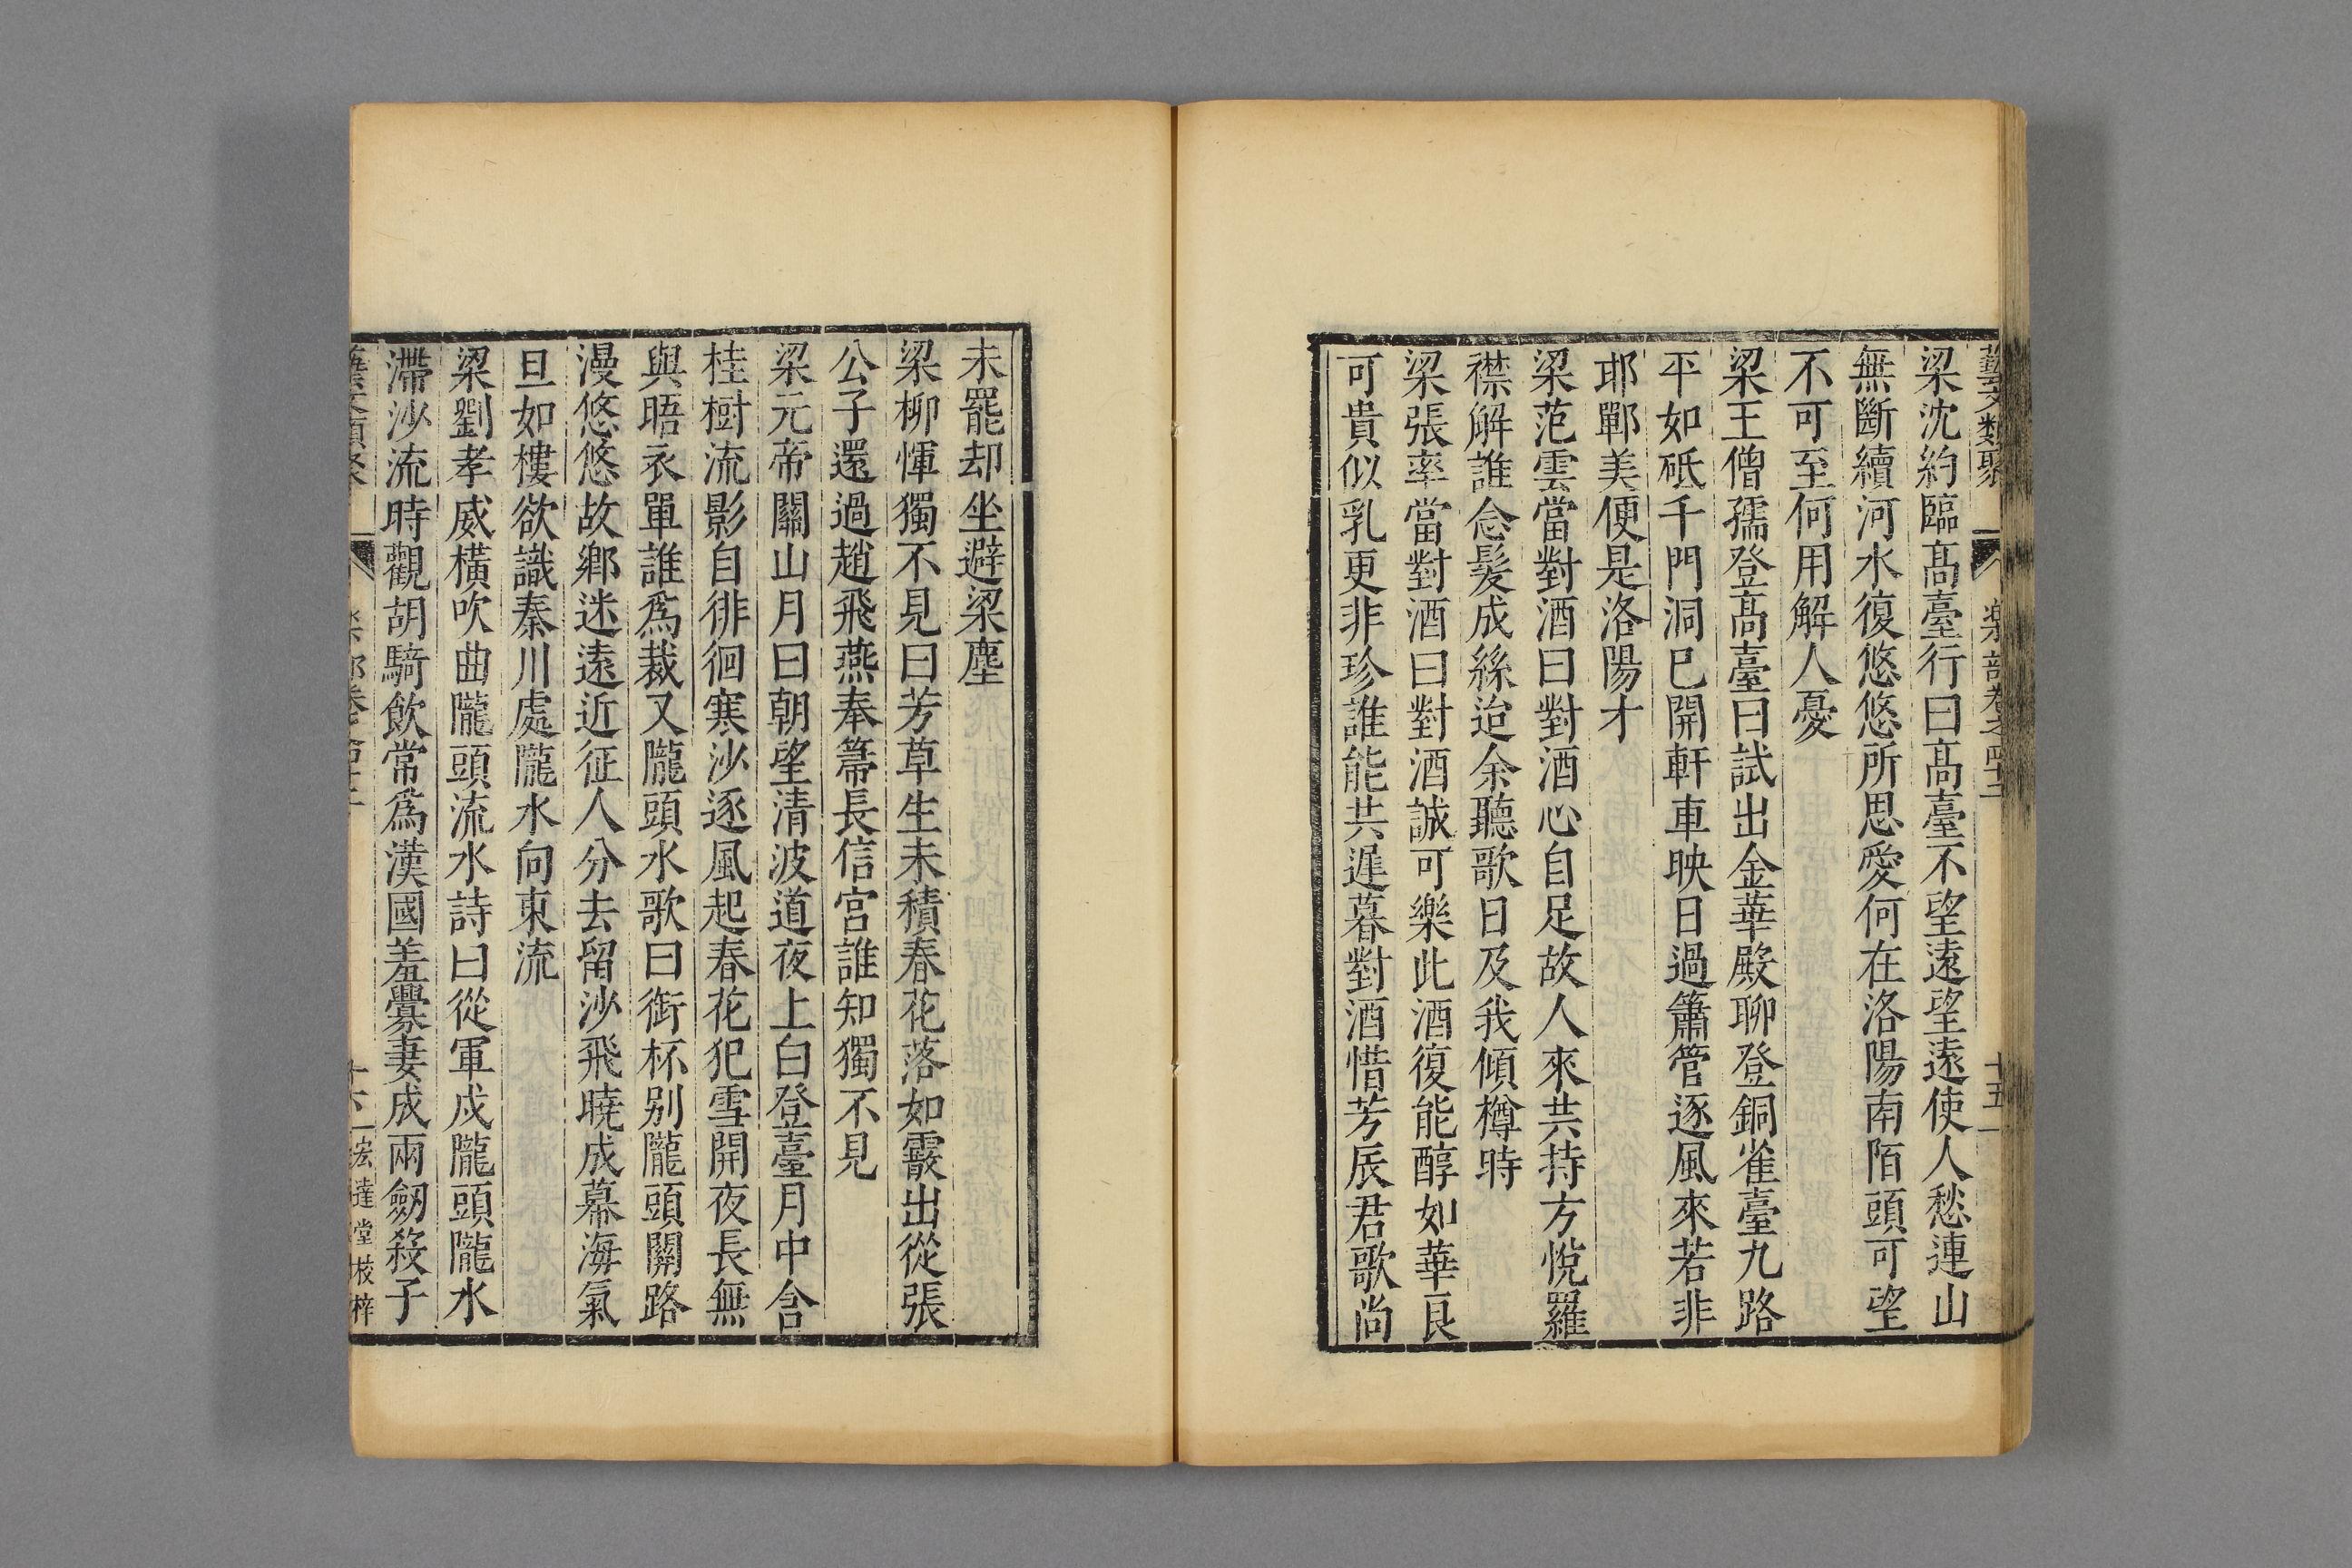 藝文類聚 樂部卷之四十二 十五
梁沈約臨髙臺行曰髙臺不望遠望遠使人愁連山
無斷續河水復悠悠所思愛何在洛陽南陌頭可望
不可至何用解人憂
梁王僧孺登髙臺曰試出金華殿聊登銅雀臺九路
平如砥千門洞巳開軒車映日過簫管逐風來若非
邯鄲美便是洛陽才
梁范雲當對酒曰對酒心自足故人來共持方悅羅
襟解誰念髮成絲迨余聽歌日及我傾樽時
梁張率當對酒曰對酒誠可樂此酒復能醇如華良
可貴似乳更非珍誰能共遲暮對酒惜芳辰君歌尚
未罷却坐避梁塵
梁柳惲獨不見曰芳草生未積春花落如霰出從張
公子還過趙飛燕奉箒長信宮誰知獨不見
梁元帝關山月曰朝望清波道夜上白登臺月中含
桂樹流影自徘徊寒沙逐風起春花犯雪開夜長無
與晤衣單誰爲裁又隴頭水歌曰銜杯別隴頭關路
漫悠悠故鄉迷遠近征人分去留沙飛曉成幕海氣
旦如樓欲識秦川處隴水向東流
梁劉孝威橫吹曲隴頭流水詩曰從軍戍隴頭隴水
滯沙流時觀胡騎飮常爲漢國羞釁妻成兩劒殺子
藝文類聚 樂部卷 十六 宏達堂校梓